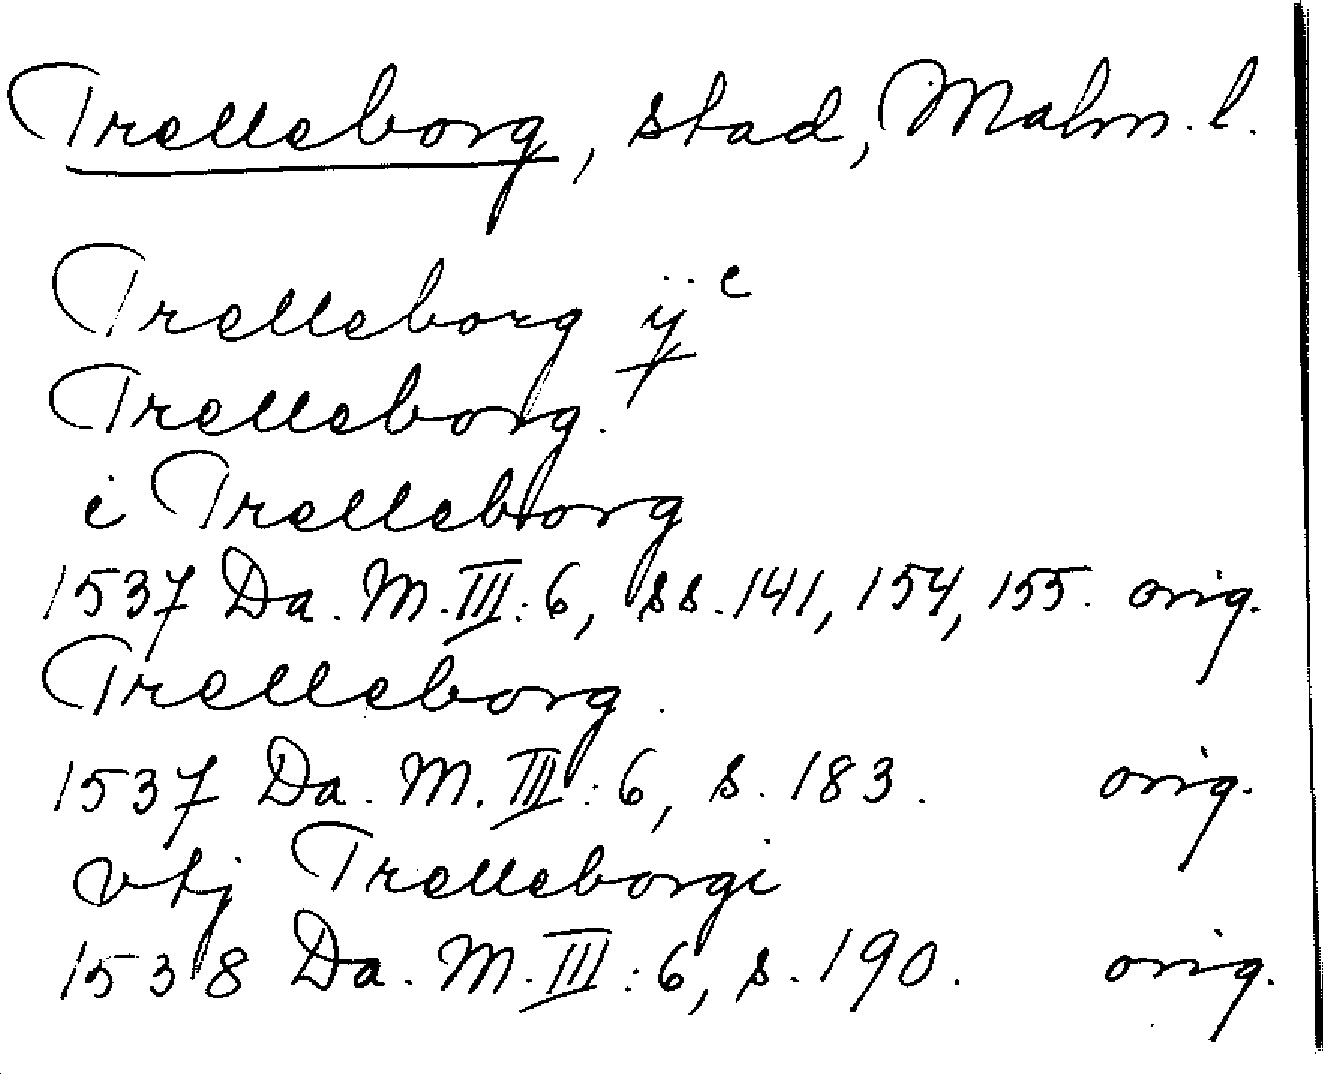 Trelleborg, stad, Malm. l.
Trelleborg ÿ c
Trelleborg.
i Trelleborg
1537 Da. M. III: 6, ss. 141, 154, 155. orig.
Trelleborg.
1537 Da. M. III: 6, s. 183. orig.
vtj Trelleborgi
1538 Da. M. III: 6, s. 190. orig.